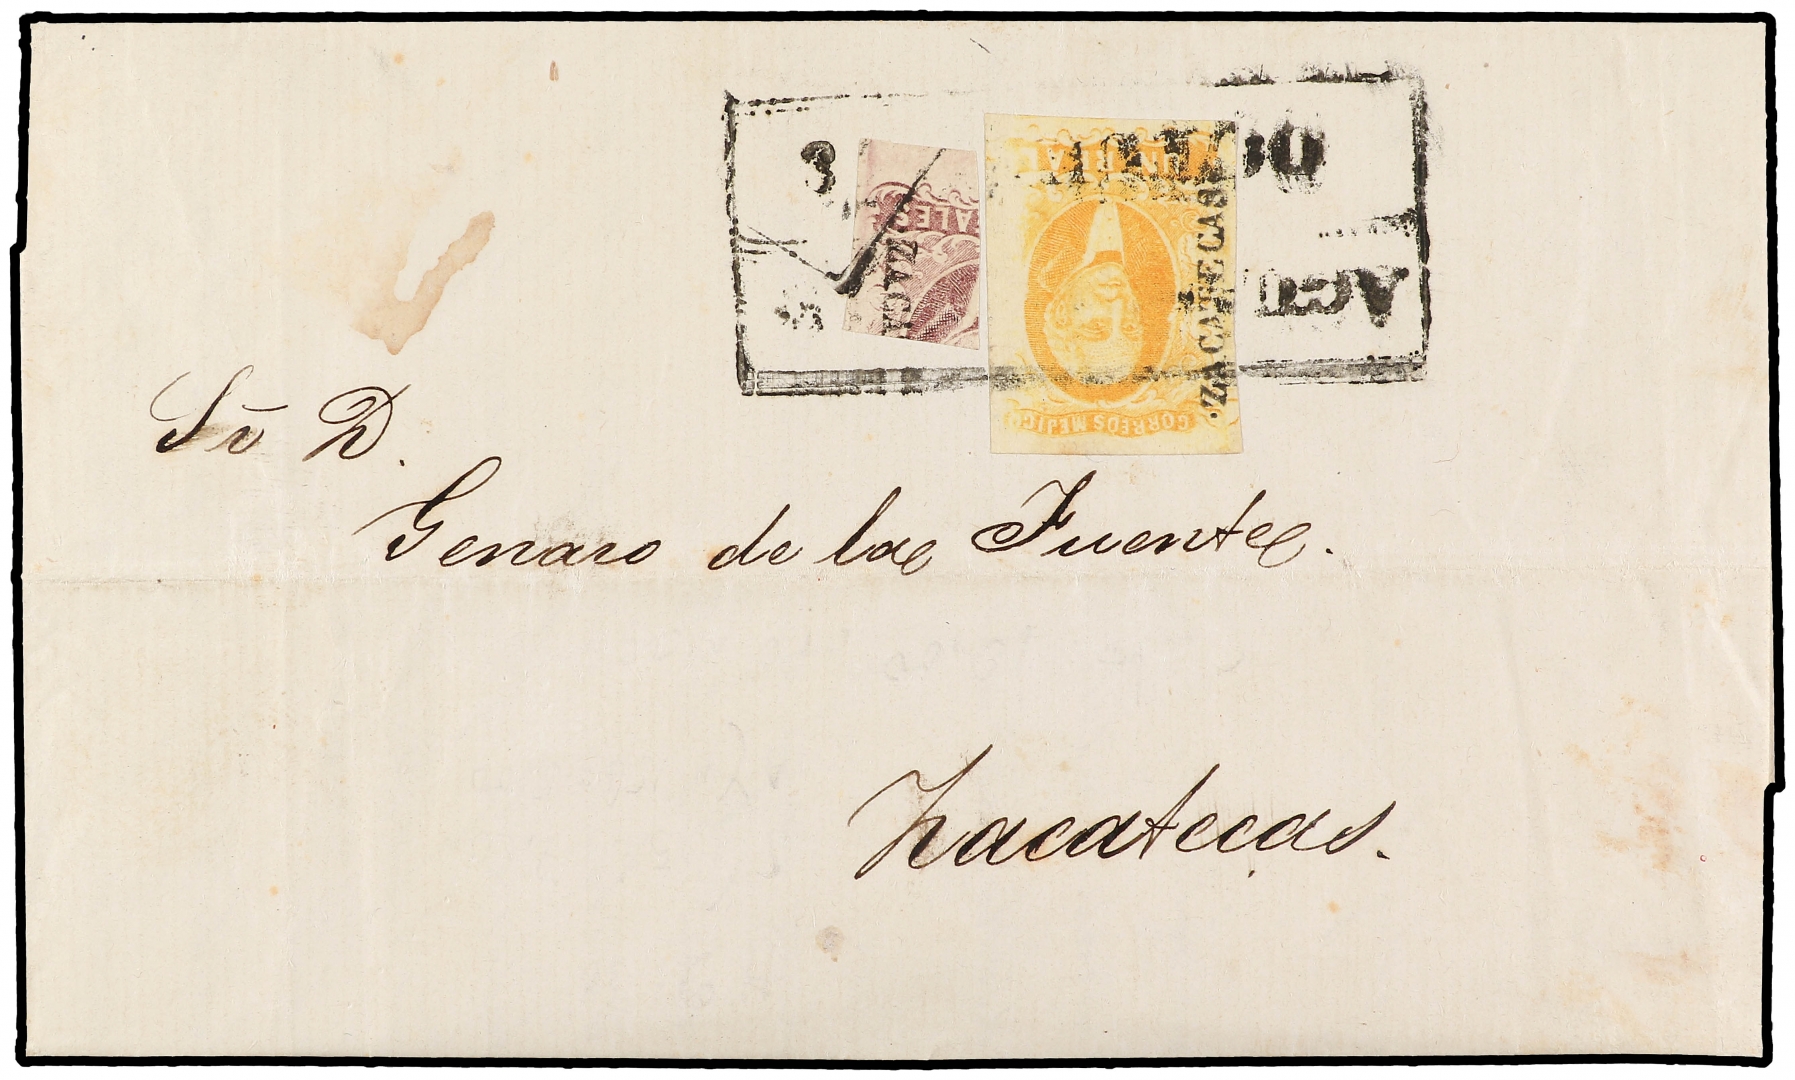 3
UN REAL
ALES
ZACA
ZACATECAS
CORREOS MEJICO
Sr̄ D.
Genaro de las Fuentes.
Zacatecas.